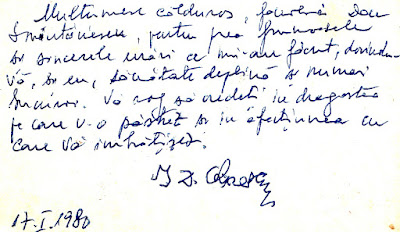 Mulțumesc călduros, 
Smântânescu, pentru prea frumoasele
și sincerele urări ce mi-am făcut, dorindu-
vă, și eu, sănătate deplină și numai
bucurii. Vă rog să credeți în dragostea
pe care v-o păstrez și în afecțiunea cu
care vă îmbrățișez.
17.I.1980